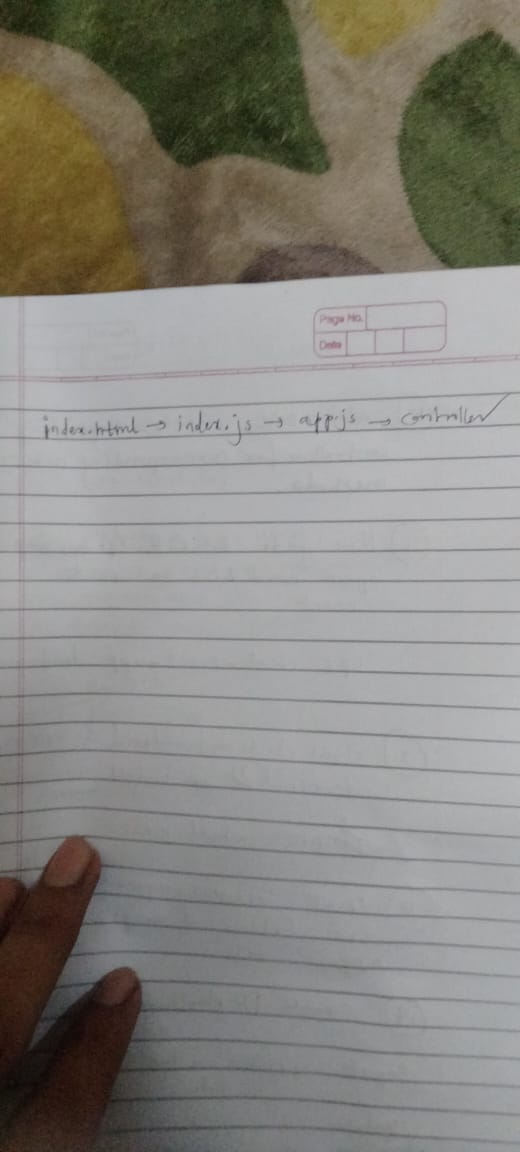 Page No.
Date
index.html → index.js → app.js → controller